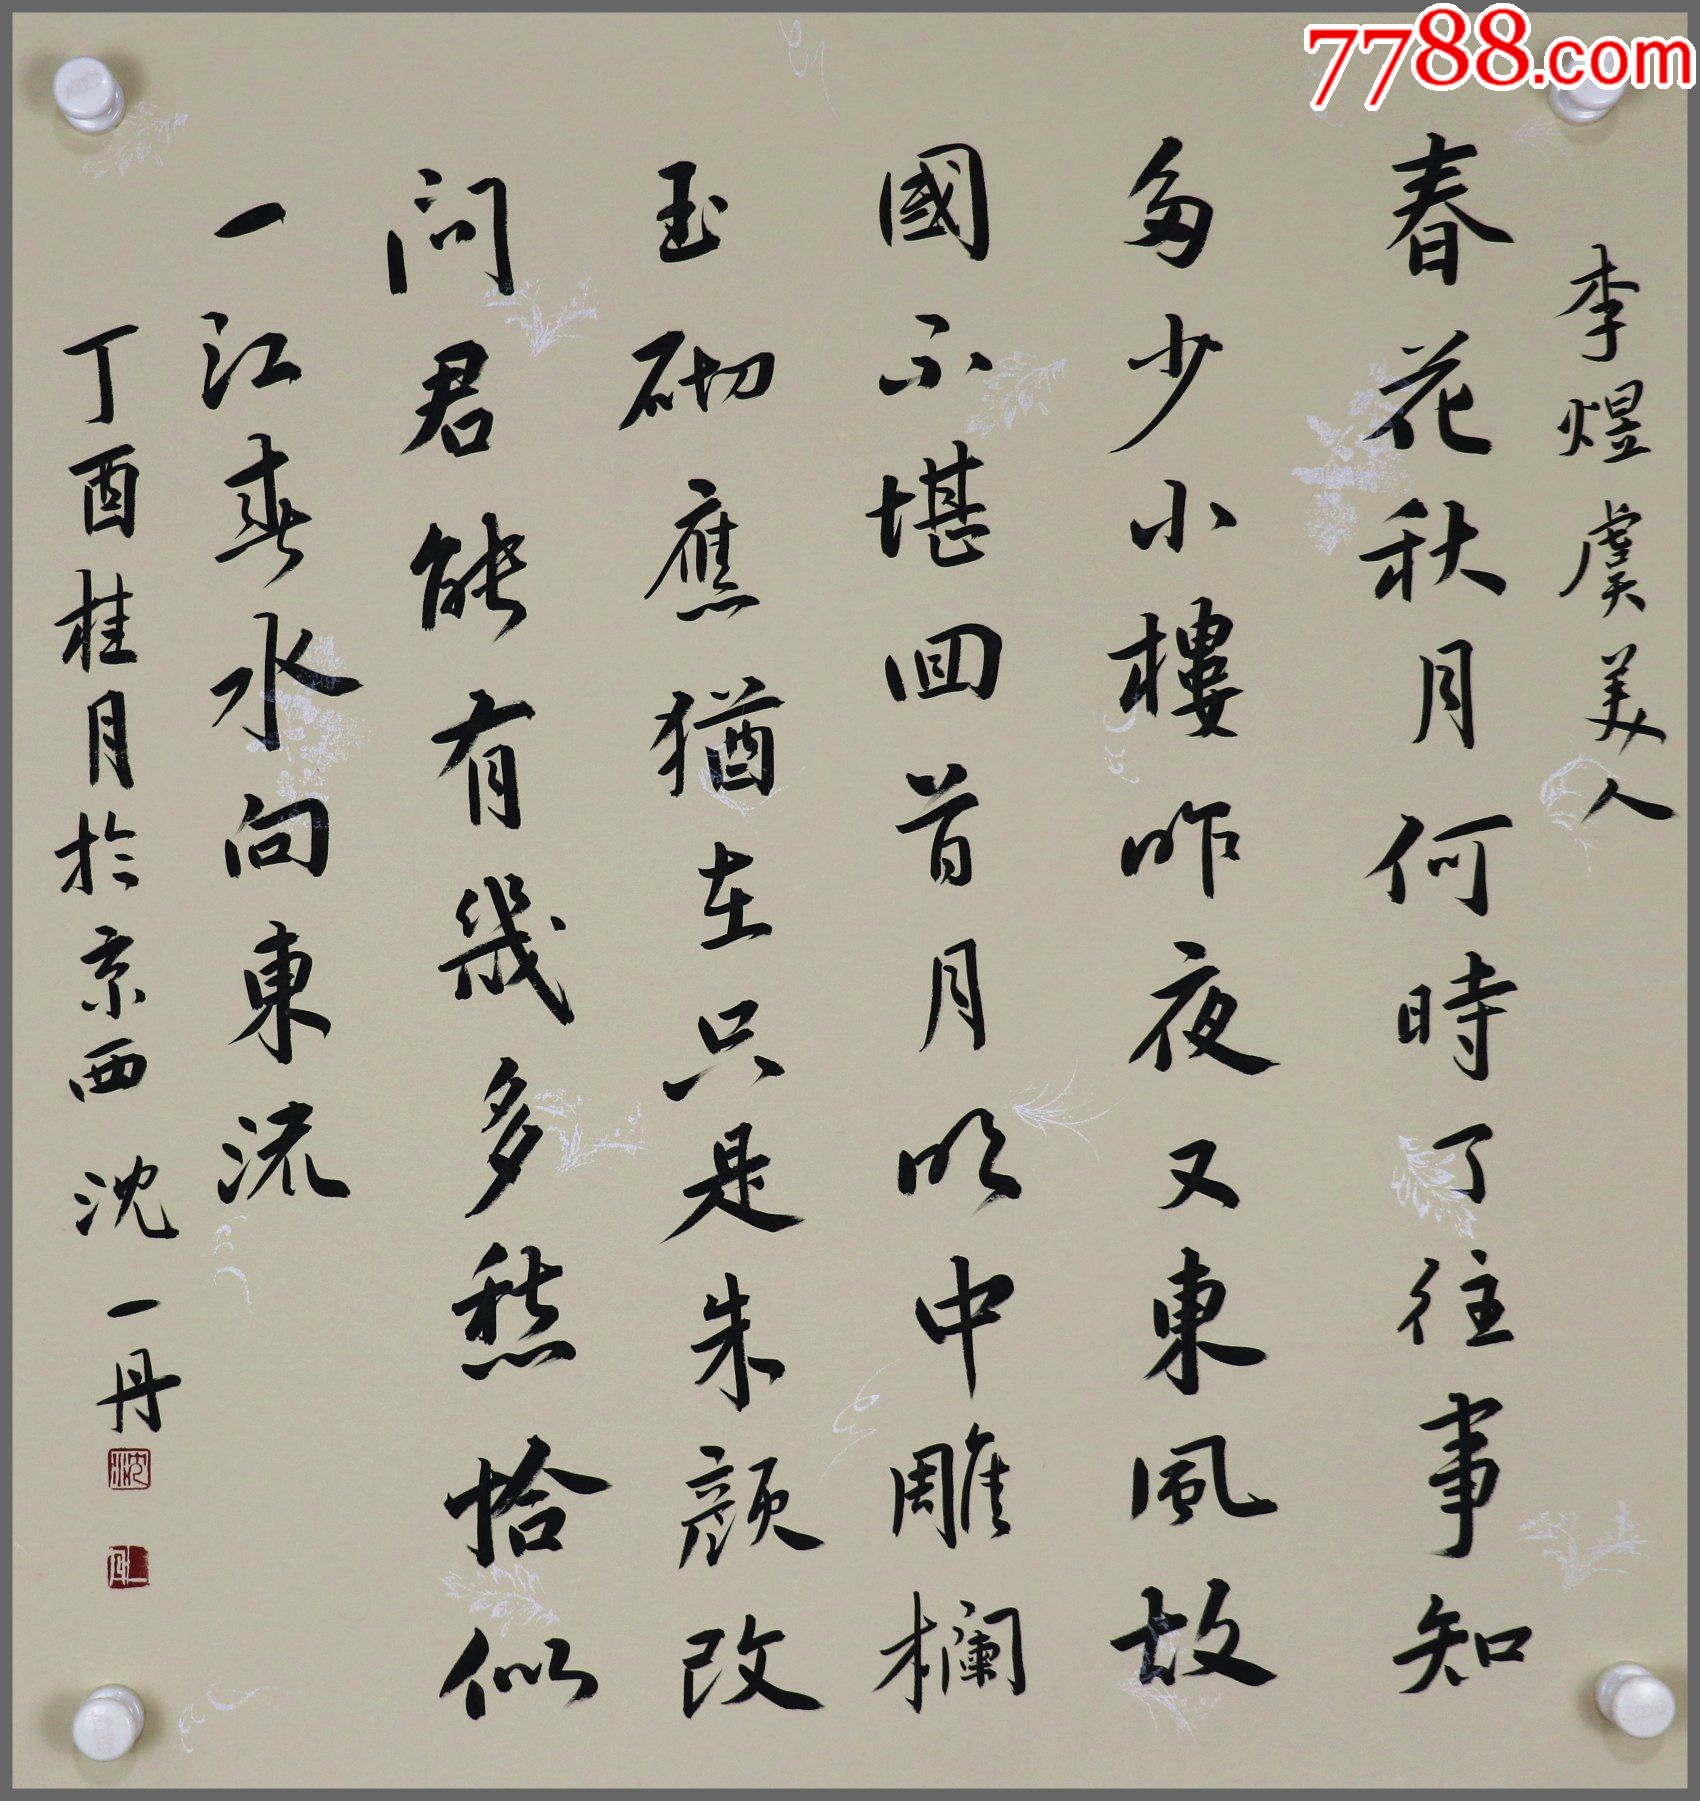 7788.com
李煜虞美人
春花秋月何時了往事知
多少小樓昨夜又東風故
國不堪回首月明中雕欄
玉砌應猶在只是朱顏改
問君能有幾多愁恰似
一江春水向東流
丁酉桂月於京西沈一丹
沈
一丹